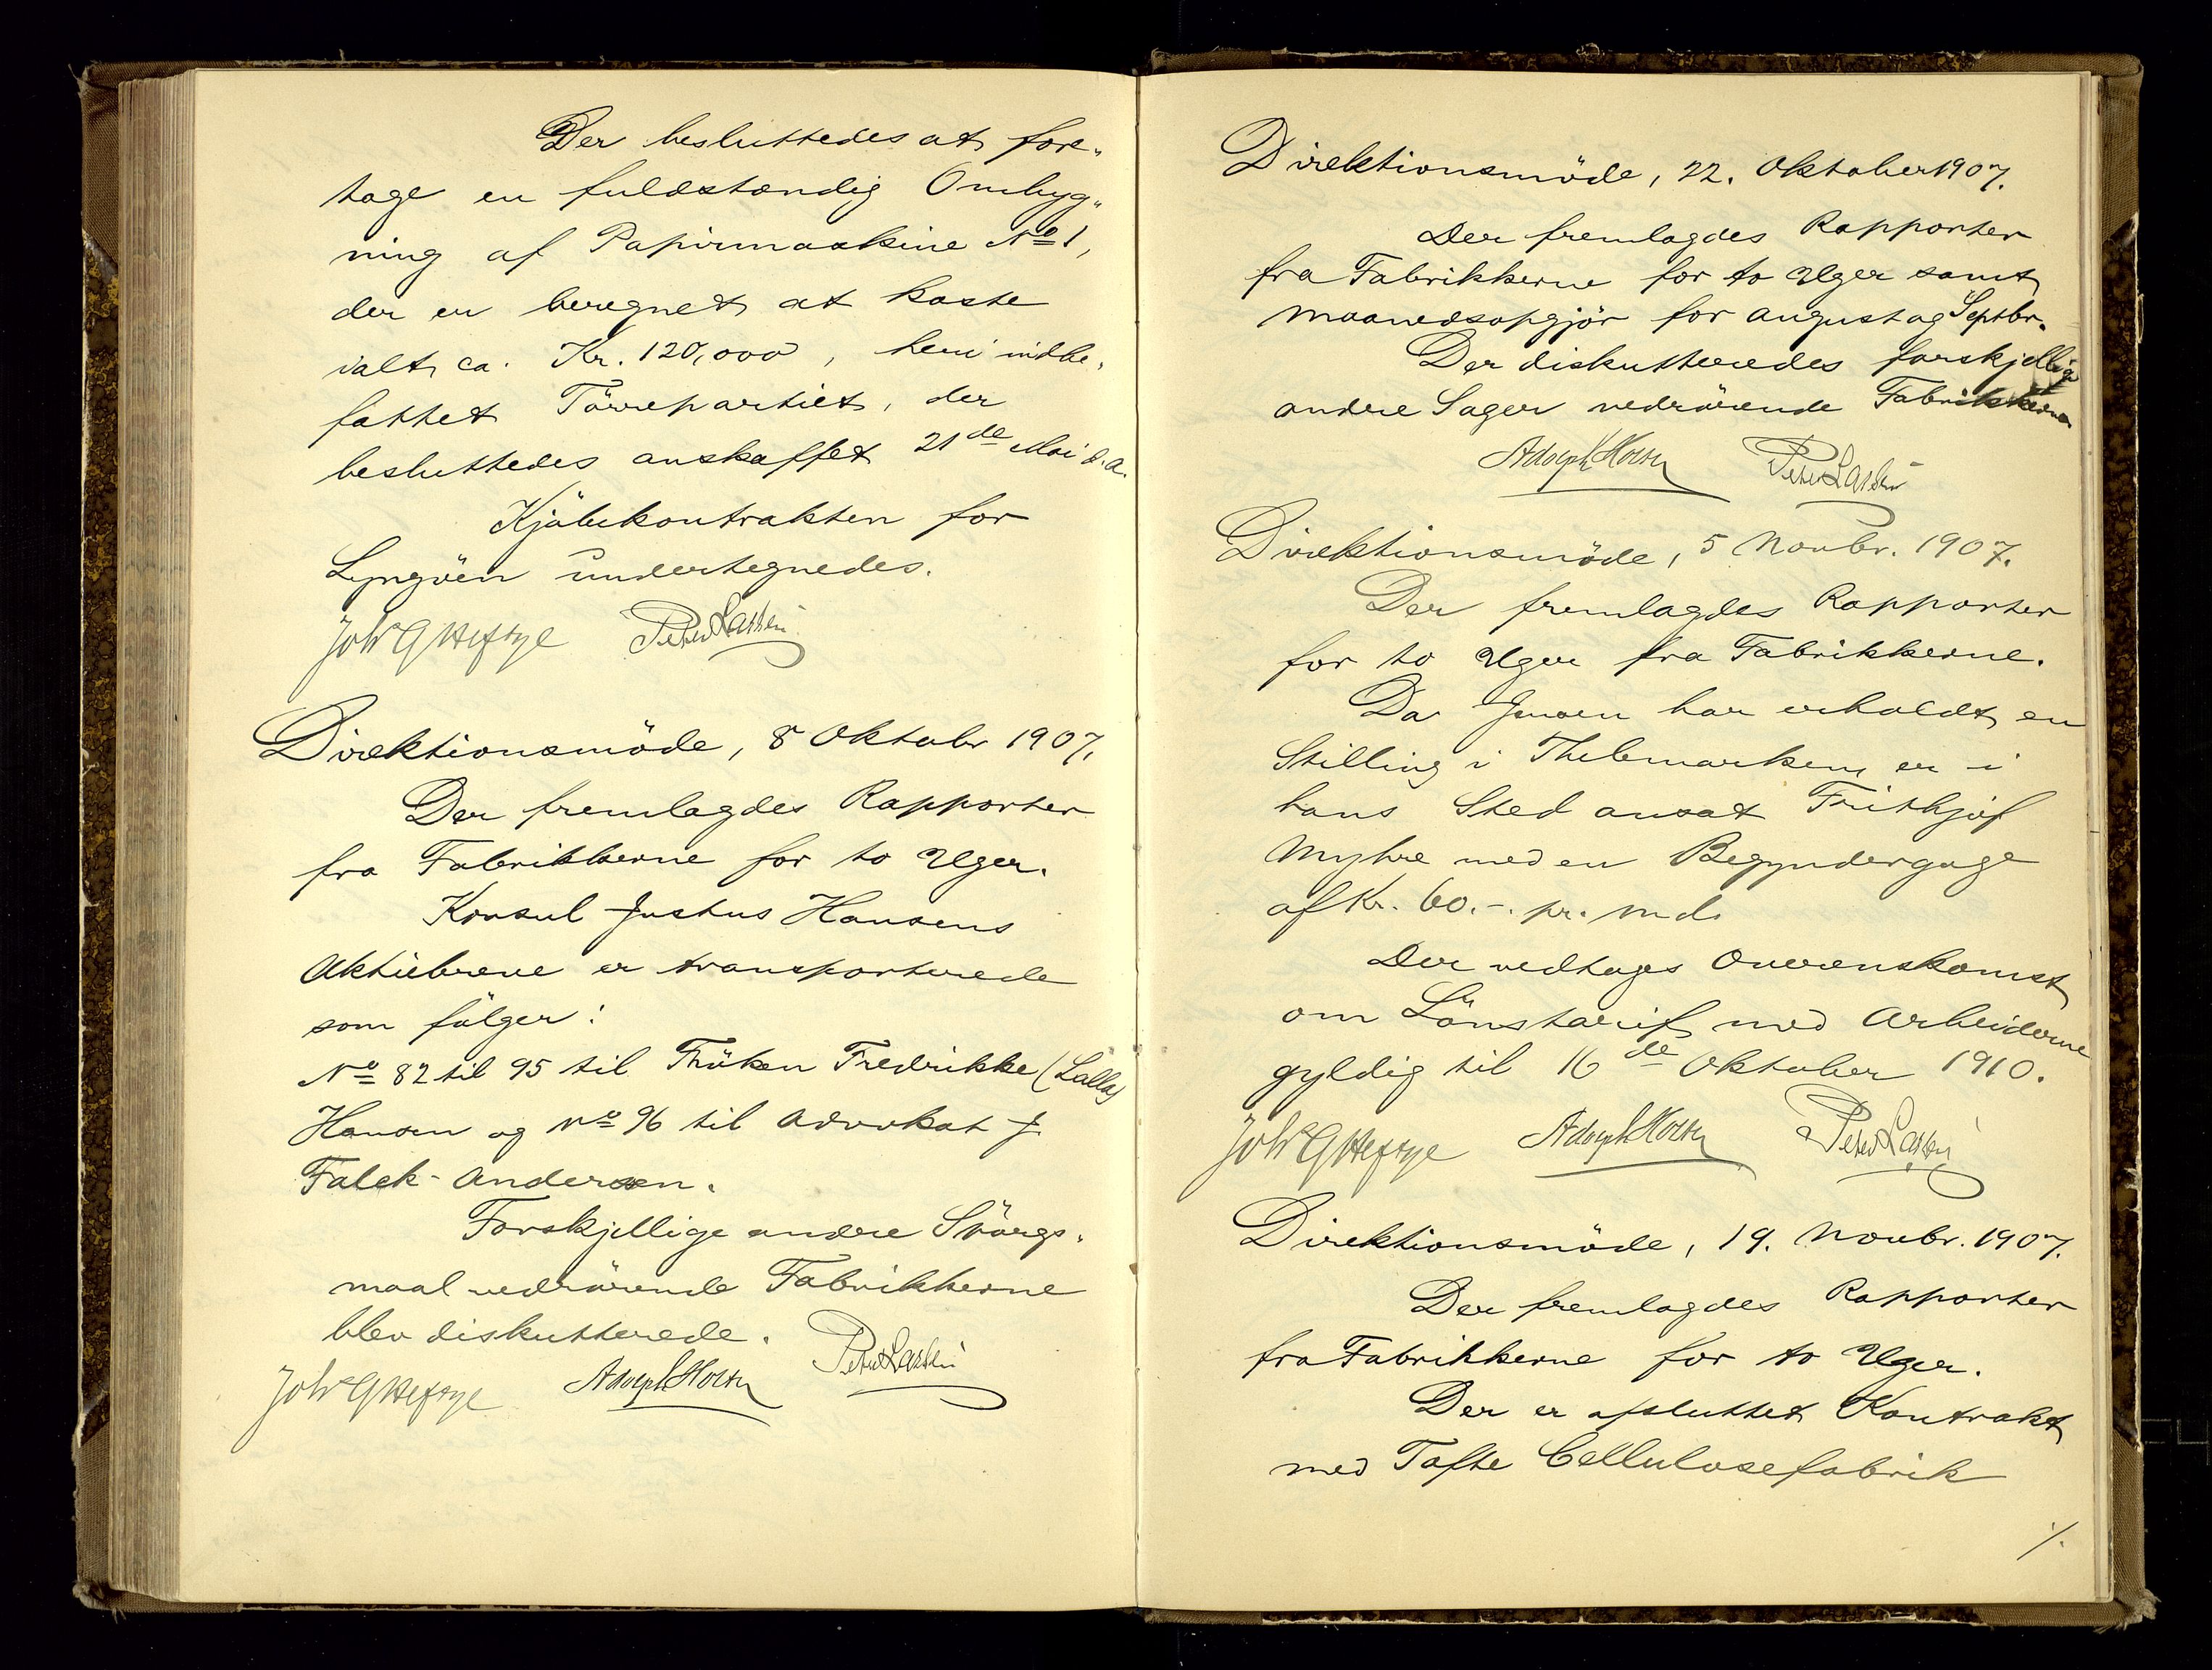 Der besluttedes at fore„
tage en fuldstændig Ombyg„
ning af Papirmaskine No 1,
der er beregnet at koste
ialt ca. Kr. 120,000, heri indbe„
fattet Törrepartiet, der
besluttedes anskaffet 21de Mai d.a.
Kjöbekontrakten for
Lyngöen undertegnedes.
Johs G Heftye Peter Larsen
Direktionsmöde, 8 Oktobr 1907.
Der fremlagdes Rapporter
fra Fabrikkerne for to Uger.
Konsul Justus Hansens
Aktiebreve er transporterede
som fölger:
No 82 til 95 til Fröken Fredrikke (Lalla)
Hansen og No 96 til Advokat J.
Falck-Andersen.
Forskjellige andre Spörgs„
maal vedrörende Fabrikkerne
blev diskutterede.
Johs G Heftye Adolph Holth Peter Larsen
Direktionsmöde, 22. Oktober 1907.
Der fremlagdes Rapporter
fra Fabrikkerne for to Uger samt
Maanedsopgjör for August og Septbr.
Der diskutteredes forskjellige
andre Sager vedrörende Fabrikkerne
Adolph Holth Peter Larsen
Direktionsmöde, 5 Novbr. 1907.
Der fremlagdes Rapporter
for to Uger fra Fabrikkerne.
Da Jensen har erholdt en
Stilling i Thelemarken er i
hans Sted ansat Frithjof
Myhre med en Begyndergage
af Kr. 60.-. pr. md.
Der vedtoges Overenskomst
om Lönstarif med Arbeiderne
gyldig til 16de Oktober 1910.
Johs G Heftye Adolph Holth Peter Larsen
Direktionsmöde, 19. Novbr. 1907.
Der fremlagdes Rapporter
fra Fabrikkerne for to Uger.
Der er afsluttet Kontrakt
med Tofte Cellulosefabrik
./.